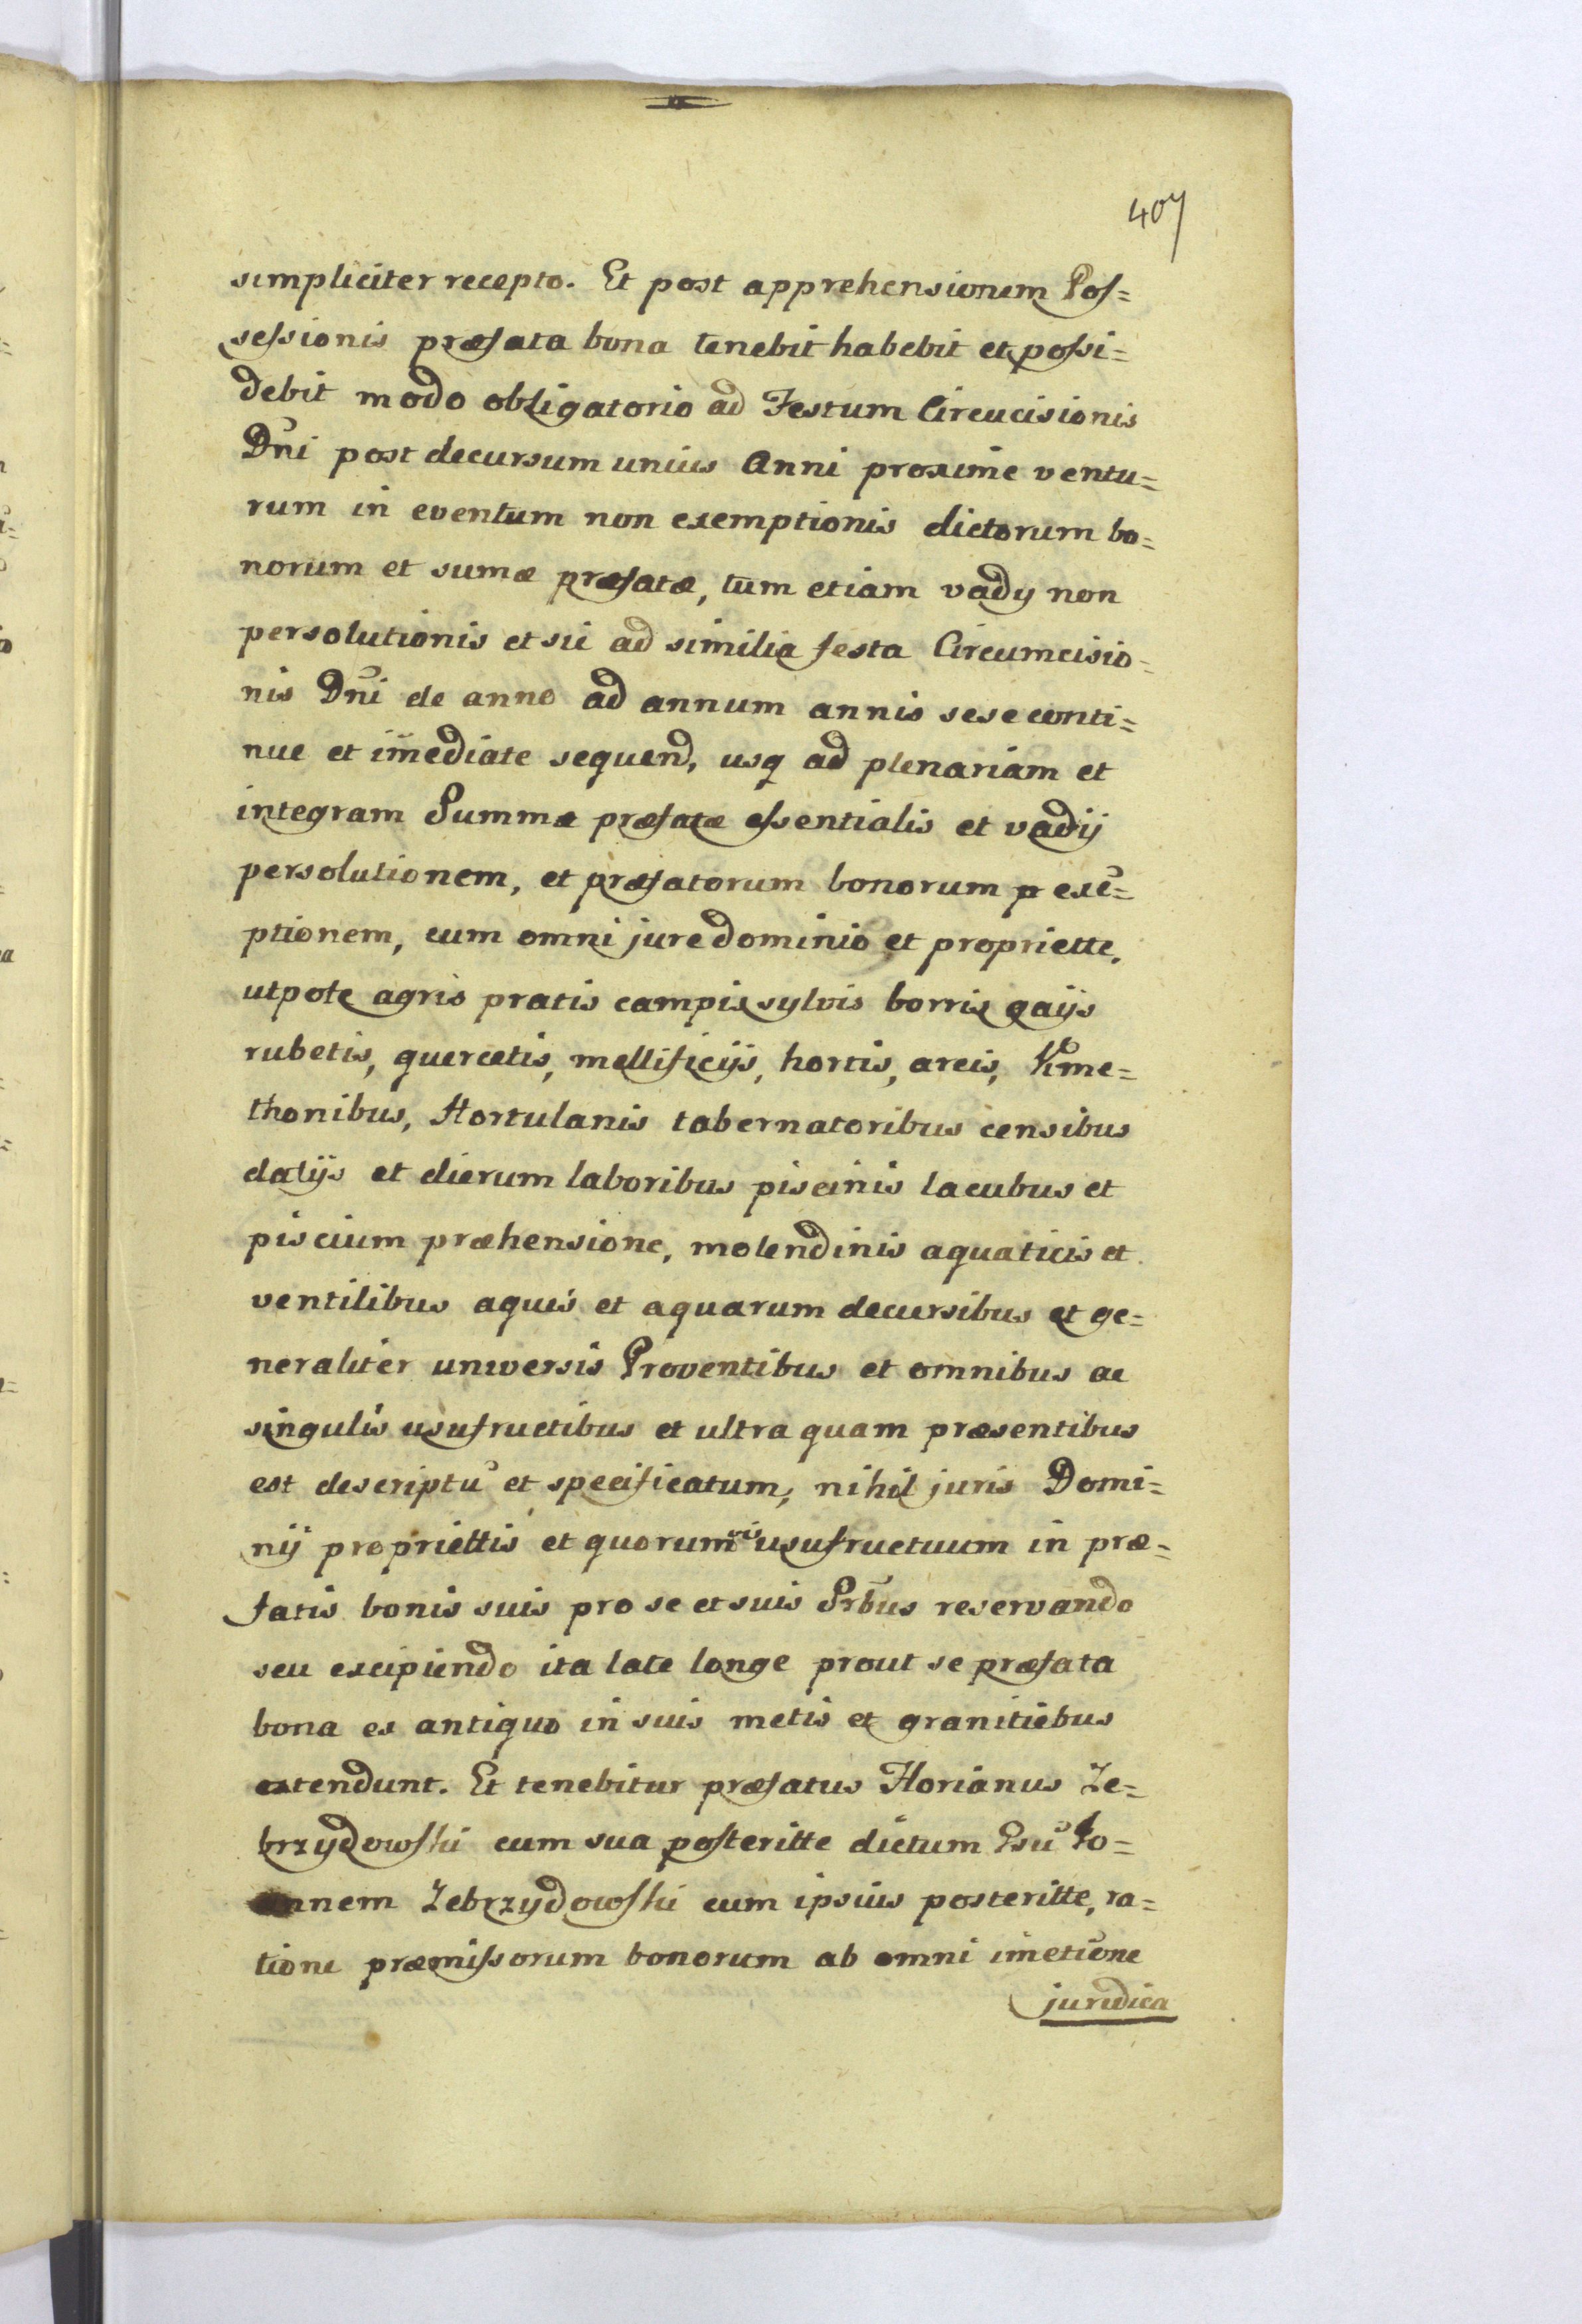 407
simpliciter recepto. Et post apprehensionem Pos=
sessionis præfata bona tenebit habebit et possi=
debit modo obligatorio ad Festum Circucisionis
Dn̄i post decursum unius Anni proxime ventu=
rum in eventum non exemptionis dictorum bo=
norum et sumæ præfatæ, tūm etiam vadÿ non
persolutionis et sic ad similia festa Circumcisio=
nis Dn̄i de anno ad annum annis sese conti=
nue et im̄ediate sequend, usq ad plenariam et
integram Summæ præfatæ essentialis et vadij
persolutionem, et præfatorum bonorum p exē=
ptionem, cum omni jure dominio et propriette,
utpote agris pratis campis sylvis borris gaijs
rubetis, quercetis, mellificijs, hortis, areis, Kme=
thonibus, Hortulanis tabernatoribus censibus
datijs et dierum laboribus piscinis lacubus et
piscium præhensione, molendinis aquaticis et
ventilibus aquis et aquarum decursibus et ge=
neraliter universis Proventibus et omnibus ac
singulis usufructibus et ultra quam præsentibus
est descriptū et specificatum, nihil juris Domi=
nij propriettis et quorumvis usufructuum in præ=
fatis bonis suis pro se et suis Srb̄us reservando
seu excipiendo ita late longe prout se præfata
bona ex antiquo in suis metis et granitiebus
extendunt. Et tenebitur præfatus Florianus Ze=
brzydowski cum sua posteritte dictum Io=
annem Zebrzydowski cum ipsius posteritte, ra=
tione præmissorum bonorum ab omni im̄etione
juridica